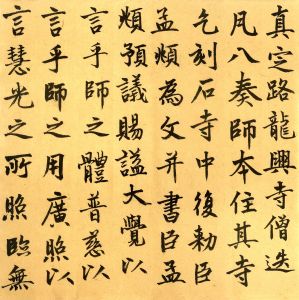 真定路龍興寺僧迭
凡八奏師本住其寺
乞刻石寺中復勑臣
孟頫為文并書臣孟
頫預議賜謚大覺以
言乎師之體普慈以
言乎師之用廣照以
言慧光之所照臨無